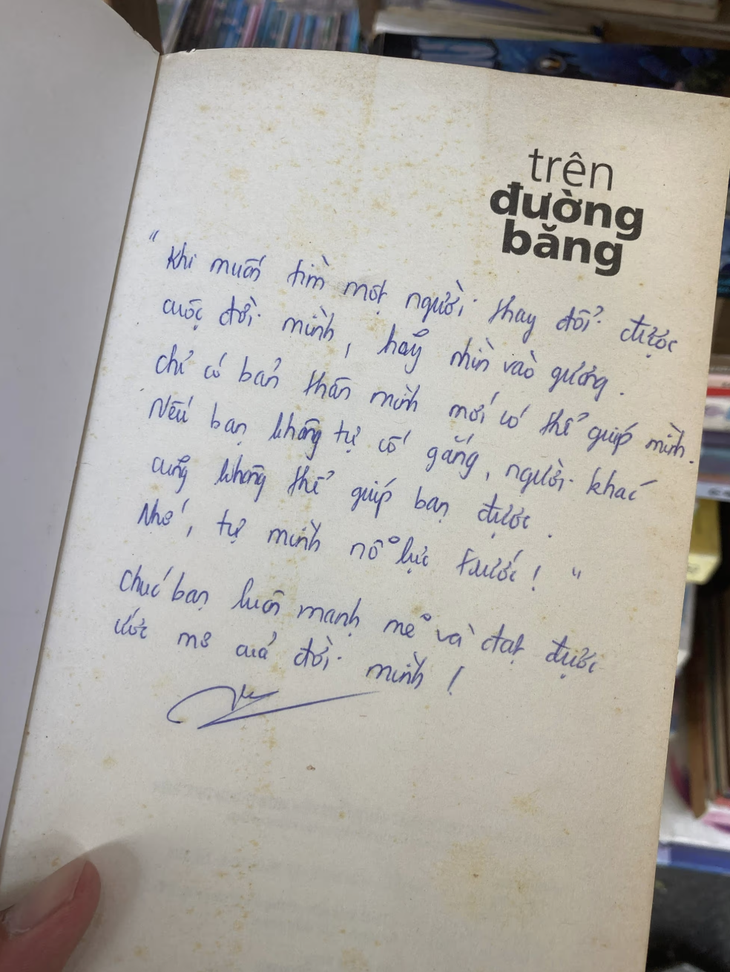 trên
đường
băng
"Khi muốn tìm một người thay đổi được
cuộc đời mình, hãy nhìn vào gương.
Chỉ có bản thân mình mới có thể giúp mình.
Nếu bạn không tự cố gắng, người khác
cũng không thể giúp bạn được.
Nhớ, tự mình nỗ lực trước! "
Chúc bạn luôn mạnh mẽ và đạt được
ước mơ của đời mình!